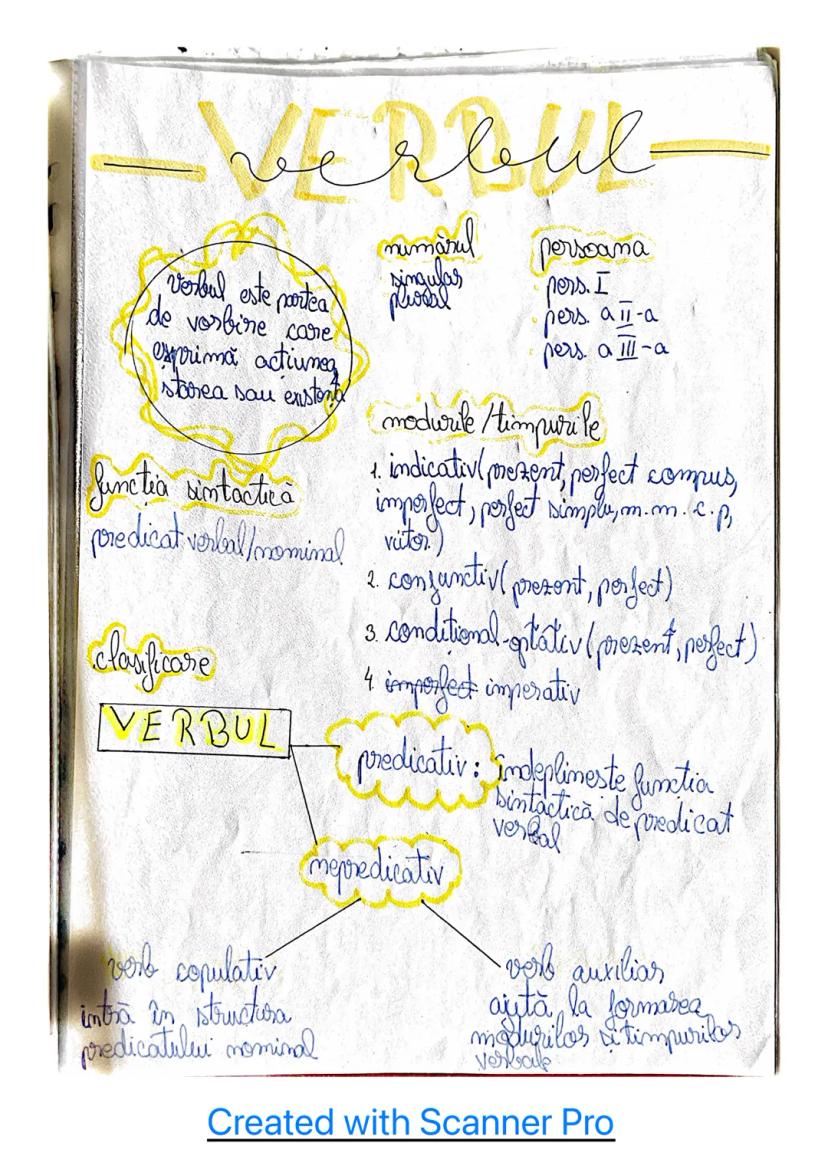 VERBUL
verbul
verbul este partea
de vorbire care
exprimă acțiunea,
starea sau existența
numărul
singular
plural
persoana
pers. I
pers. a II-a
pers. a III-a
funcția sintactică
predicat verbal/nominal
modurile/timpurile
1. indicativ(prezent, perfect compus,
imperfect, perfect simplu, m.m.c.p,
viitor)
2. conjunctiv(prezent, perfect)
3. condițional-optativ(prezent, perfect)
4. imperfect imperativ
clasificare
VERBUL
predicativ: îndeplinește funcția
sintactică de predicat
verbal
nepredicativ
verb copulativ
intră în structura
predicatului nominal
verb auxiliar
ajută la formarea
modurilor și timpurilor
verbale
Created with Scanner Pro